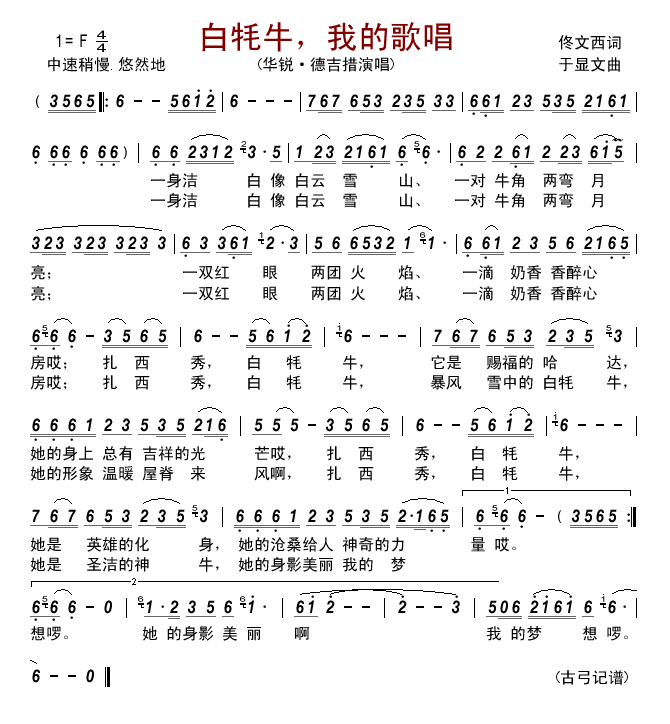 白牦牛，我的歌唱
1= F 4/4
佟文西词
中速稍慢.悠然地
(华锐·德吉措演唱)
于显文曲
( 3565 ‖: 6 - - 5612 | 6 - - - | 767 653 235 33 | 661 23 535 2161 |
6 66 6 66 ) | 6 6 2312 23·5 | 1 23 2161 656· | 6 2 2 61 2 23 615 |
一身洁 白 像 白云 雪 山、 一对 牛角 两弯 月
一身洁 白 像 白云 雪 山、 一对 牛角 两弯 月
323 323 323 3 | 6 3 361 12·3 | 5 6 6532 1 61· | 6 61 23 56 2165 |
亮； 一双红 眼 两团 火 焰、 一滴 奶香 香醉心
亮； 一双红 眼 两团 火 焰、 一滴 奶香 香醉心
656 6 - 3565 | 6 - - 5612 | i6 - - - | 767 653 235 53 |
房哎； 扎 西 秀， 白 牦 牛， 它是 赐福的 哈 达，
房哎； 扎 西 秀， 白 牦 牛， 暴风 雪中的 白牦 牛，
6661 23 535 216 | 555 - 3535 | 6 - - 5612 | i6 - - - |
她的身上 总有 吉祥的光 芒哎， 扎 西 秀， 白 牦 牛，
她的形象 温暖 屋脊 来 风啊， 扎 西 秀， 白 牦 牛，
767 653 235 53 | 6661 23 535 2·165 | 1 656 6 - ( 3565 :‖
她是 英雄的化 身， 她的沧桑给人 神奇的力 量 哎。
她是 圣洁的神 牛， 她的身影美丽 我的 梦
2
656 6 - 0 | 61·2 35 6 6i· | 6i 2 - - | 2 - - 3 | 506 2161 6 i6· |
想啰。 她 的身影 美 丽 啊 我 的梦 想 啰。
6 - - 0 ‖
(古弓记谱)